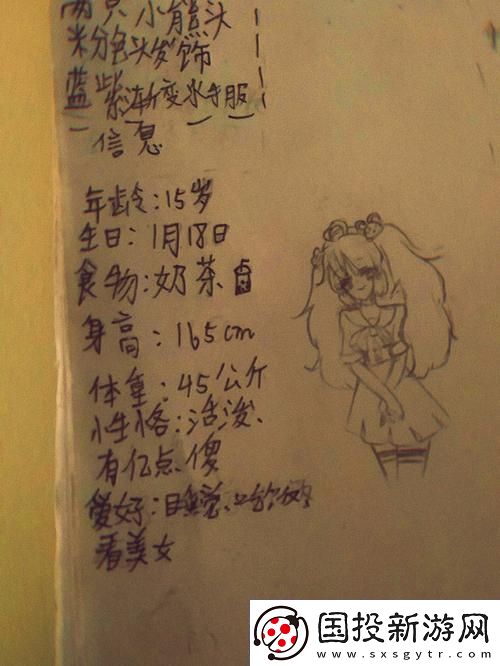 两只小熊头
粉色头发饰
蓝紫渐变水手服
信息
年龄:15岁
生日:1月18日
食物:奶茶
身高:165cm
体重:45公斤
性格:活泼、
有亿点傻
爱好:睡觉、
看美女
国投新游网
www.sxsgytr.com